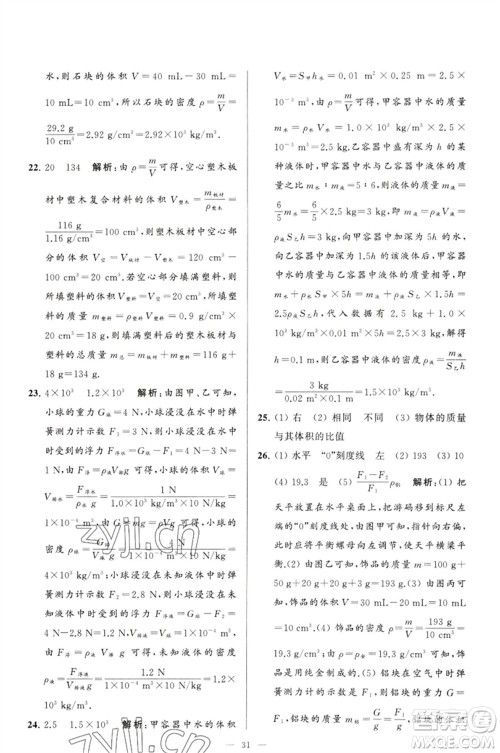 水,则石块的体积 V=40 mL-30 mL=
10 mL=10 cm³,石块的密度 ρ=m/V=
29.2 g/10 cm³=2.92 g/cm³=2.92×10³ kg/m³.
22. 20 134 解析:由 ρ=m/V 可得,空心塑木板
材中塑木复合材料的体积 V塑木=m塑木/ρ塑木=
116 g/1.16 g/cm³=100 cm³. 空心塑木板材中空心部
分的体积 V空=V-V塑木=120 cm³-100
cm³=20 cm³. 若空心部分填满塑料,则
所填塑料的体积 V塑料=V空=20 cm³,
所填塑料的质量 m塑料=ρ塑料V塑料=0.9 g/
cm³×20 cm³=18 g,则空心塑木板材与
塑料的总质量 m总=m板材+m塑料=116 g+
18 g=134 g.
23. 4×10³ 1.2×10³ 解析:由图甲、乙可知,
小球的重力 G=4 N,小球浸没在水中时弹
簧测力计示数 F₁=3 N,则小球浸没在水中
受到的浮力 F浮水=G-F₁=4 N-3 N=
1 N. V排=V球=F浮水/ρ水g=1 N/1.0×10³ kg/m³×10 N/kg=
1×10⁻⁴ m³. 由 G=mg=ρVg 可得,小球的密
度 ρ球=G/V球g=4 N/1×10⁻⁴ m³×10 N/kg=
4×10³ kg/m³. 小球浸没在未知液体中时弹
簧测力计示数 F₂=2.8 N,则小球浸没在未
知液体中受到的浮力 F浮液=G-F₂=
4 N-2.8 N=1.2 N. V排液=V球=1×10⁻⁴
m³,由 F浮=ρ液gV排 可得,未知液体的密度
ρ液=F浮液/gV排液=1.2 N/1×10⁻⁴ m³×10 N/kg=
1.2×10³ kg/m³.
24. 2.5 1.5×10³ 解析:甲容器中水的体积
V水=S甲h水=0.01 m²×0.25 m=2.5×
10⁻³ m³. 由 ρ=m/V 可得,甲容器中水的质量
m水=ρ水V水=1.0×10³ kg/m³×2.5×
10⁻³ m³=2.5 kg. 甲、乙容器中水与液体的
质量之比为 5∶6,乙容器中液体的质量 m液=
6/5 m水=6/5×2.5 kg=3 kg. 乙容器中液体的质
量 m液=ρ液S乙h=3 kg,甲容器中水的质量
m水=ρ水S甲×5h,代入数据有 2.5 kg=
1.0×10³ kg/m³×0.01 m²×5h,解得
h=0.1 m,则乙容器中液体的密度 ρ液=m液/S乙h=
3 kg/0.02 m²×0.1 m=1.5×10³ kg/m³.
25. (1) 右 (2) 相同 不同 (3) 物体的质量
与其体积的比值
26. (1) 水平 “0”刻度线 左 (2) 193 (3) 10
(4) 19.3 是 (5) F₁-F₂/F₁ ρ铝 解析:(1) 把
天平放置在水平桌面上,将游码移到标尺左
端的“0”刻度线处,由图甲可知,指针向右偏,
此时应将平衡螺母向左调节,使天平横梁水
平平衡. (2) 由图乙可知,饰品的质量 m=100 g+
50 g+20 g+20 g+3 g=193 g. (3) 由图丙可
知,饰品的体积 V=10 mL=
10 cm³. (4) 饰品的密度 ρ=m/V=193 g/10 cm³=
19.3 g/cm³=19.3×10³ kg/m³,所以该饰
品是用纯金制成的. (5) 铝块在空气中时弹
簧测力计的示数为 F₁,根据二力平衡知识可
知,G=F₁,则铝块的质量 m=G/g=F₁/g,铝块
31
zyjl.cn